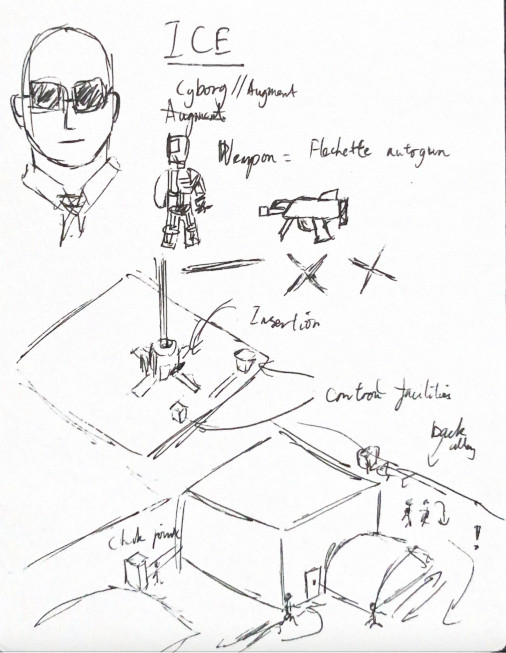 ICE
Cyborg // Augment
Augment
Weapon = Flachette autogun
Insertion
Control facilities
back
alley
Chek point